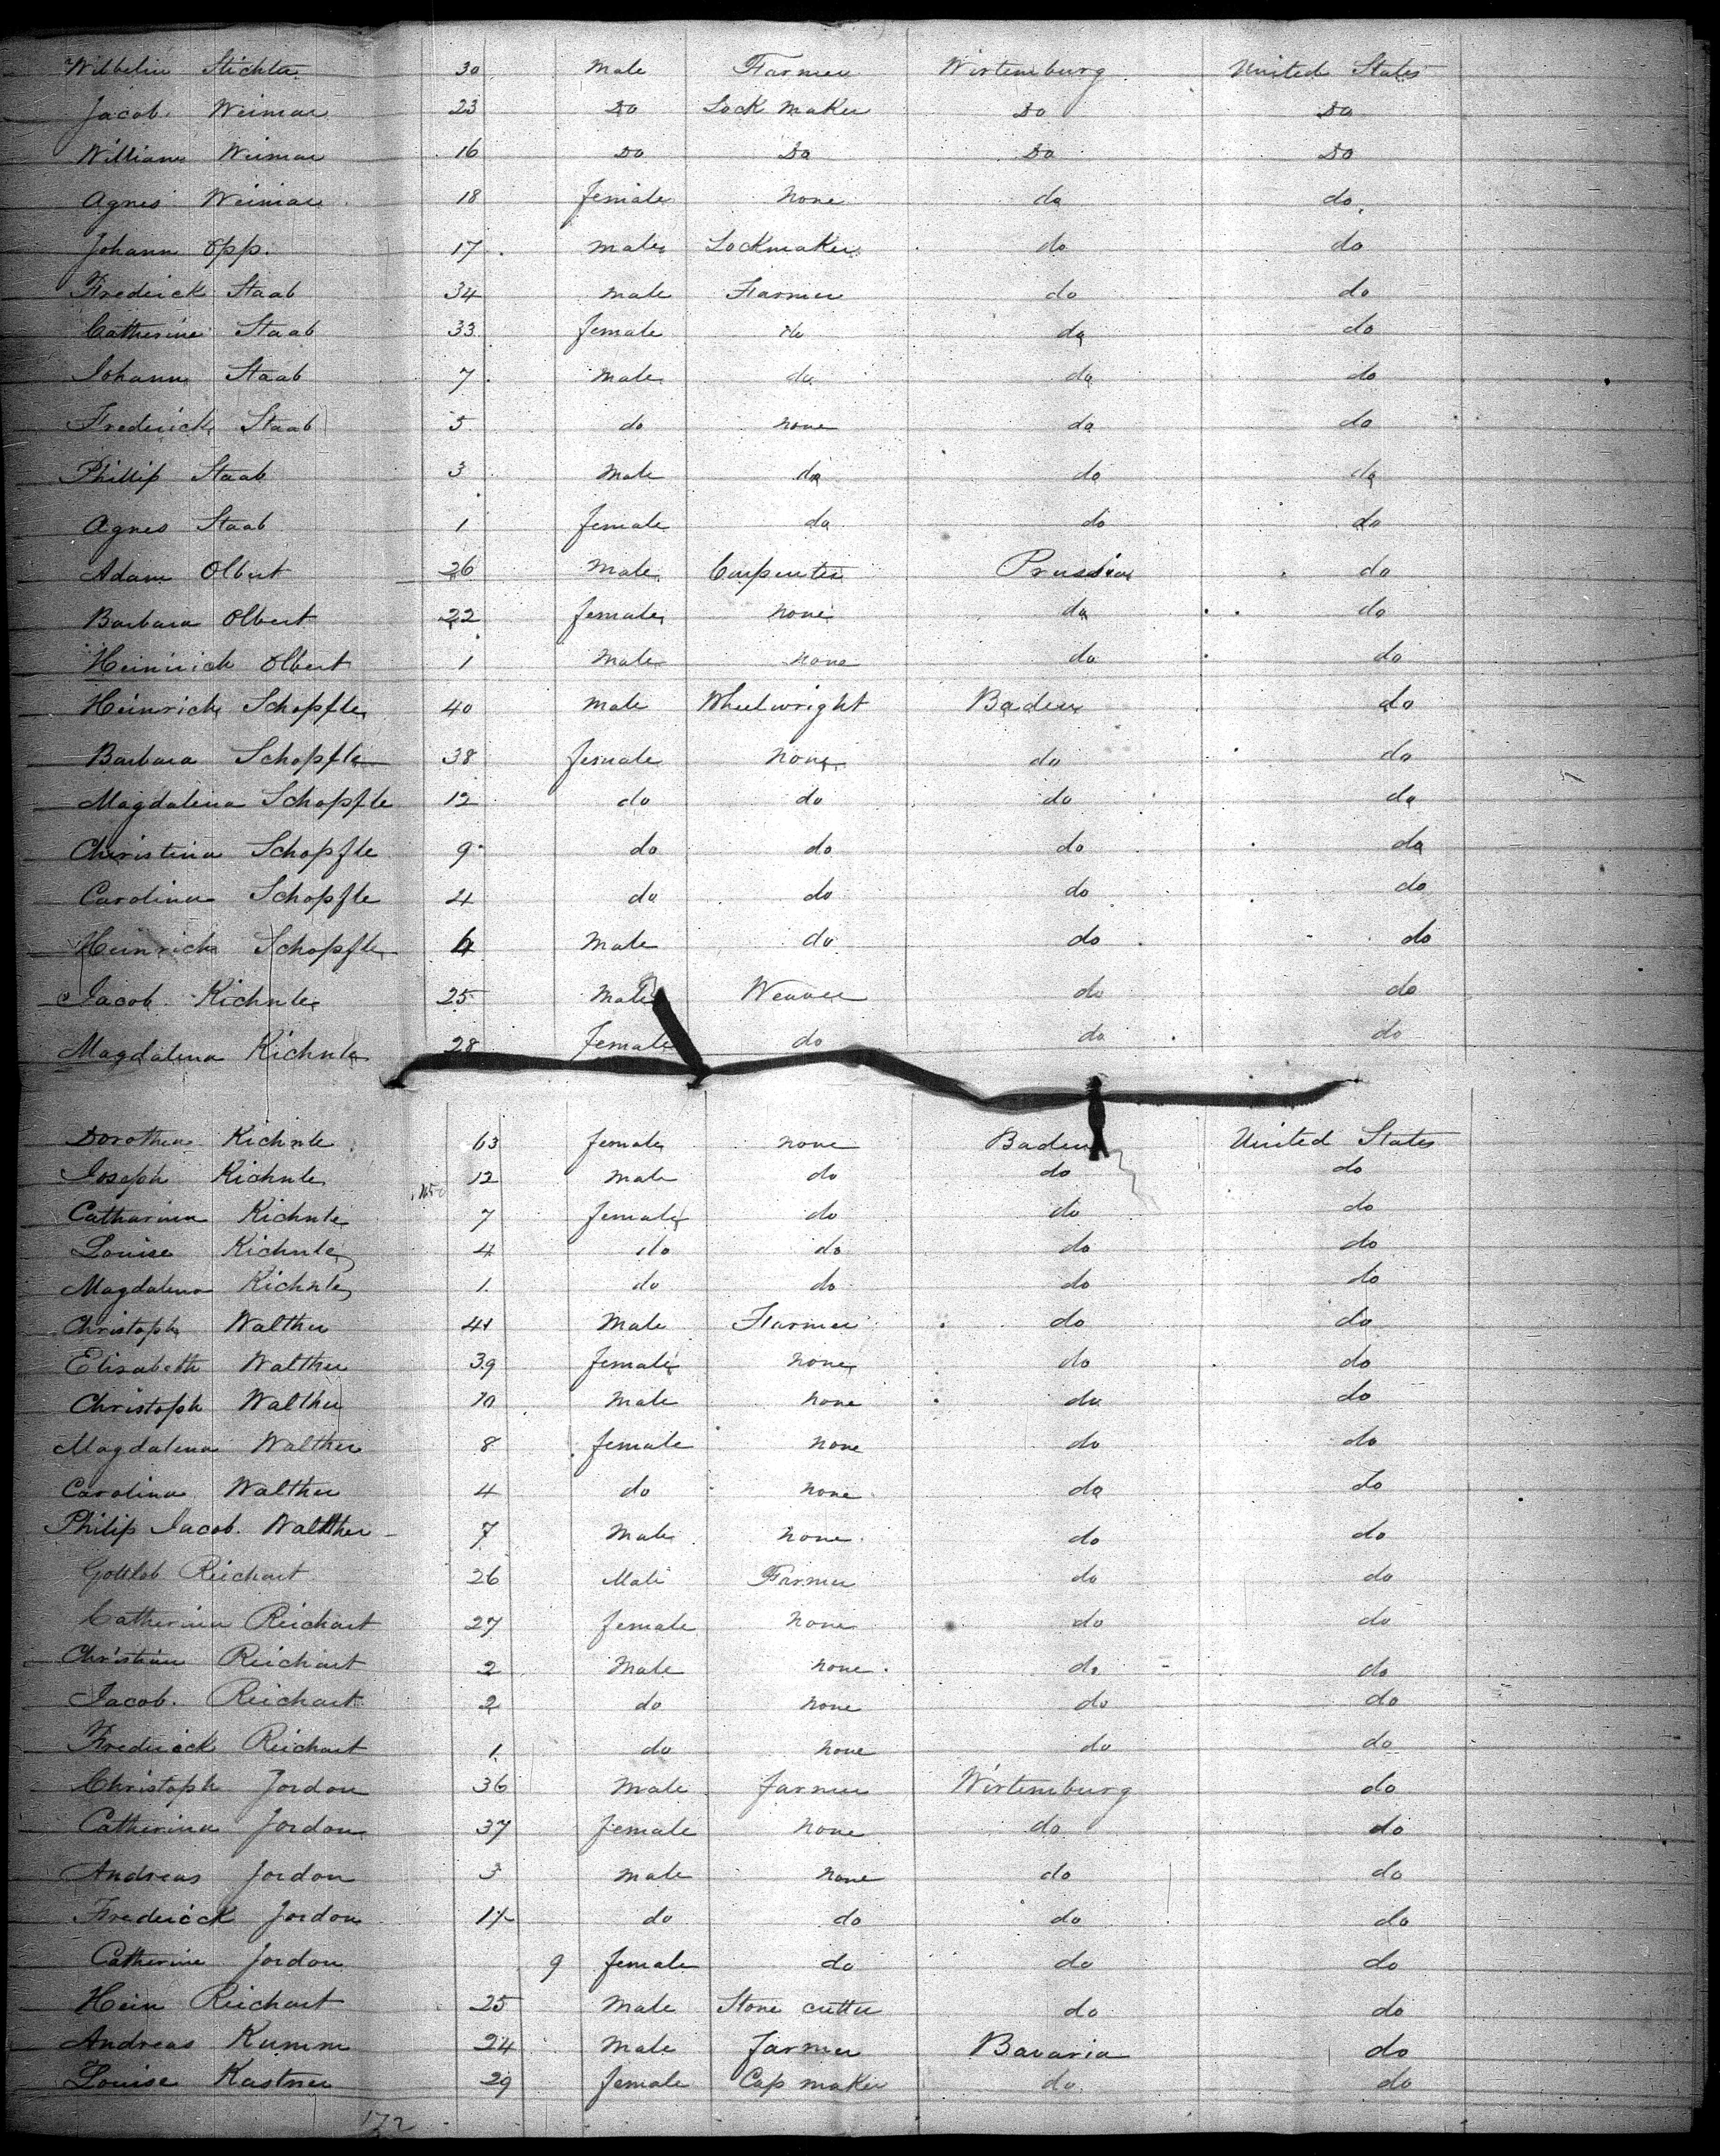 Wilhelm Stichter 30 Male Farmer Wirtemburg United States
Jacob Weimar 23 Do Lock Maker Do Do
William Weimar 16 Do Do Do Do
Agnes Weimar 18 female None do do
Johann Opp. 17 Male Lockmaker do do
Frederick Staab 34 Male Farmer do do
Catherine Staab 33 female do do do
Johann Staab 7 Male do do do
Frederick Staab 5 do none do do
Phillip Staab 3 Male do do do
Agnes Staab 1 female do do do
Adam Olbert 26 Male Carpenter Prussia do
Barbara Olbert 22 female none do do
Heinrich Olbert 1 Male none do do
Heinrich Schopfle 40 Male Wheelwright Baden do
Barbara Schopfle 38 female None do do
Magdalena Schopfle 12 do do do do
Christina Schopfle 9 do do do do
Carolina Schopfle 4 do do do do
Heinrich Schopfle Male do do do
Jacob Kichnle 25 Male Weaver do do
Magdalena Kichnle 28 Female do do do
Dorothea Kichnle 63 female none Baden United States
Joseph Kichnle 12 Male do do do
Catharina Kichnle 7 female do do do
Louise Kichnle 4 do do do do
Magdalena Kichnle 1. do do do do
Christoph Walther 41 Male Farmer do do
Elisabeth Walther 39 female none do do
Christoph Walther 10 Male none do do
Magdalena Walther 8 female none do do
Carolina Walther 4 do none do do
Philip Jacob. Walther 7 Male none do do
Gottlob Reichart 26 Male Farmer do do
Catherina Reichart 27 female None do do
Christian Reichart 2 Male none do do
Jacob. Reichart 2 do none do do
Frederick Reichart 1 do none do do
Christoph Jordon 36 Male farmer Wirtemburg do
Catherina Jordon 37 female None do do
Andreas Jordon 3 Male none do do
Frederick Jordon do do do do
Catherine Jordon 9 female do do do
Hein Reichart 25 Male Stone cutter do do
Andreas Kumm 24 Male farmer Bavaria do
Louise Kastner 29 female Cap maker do do
172